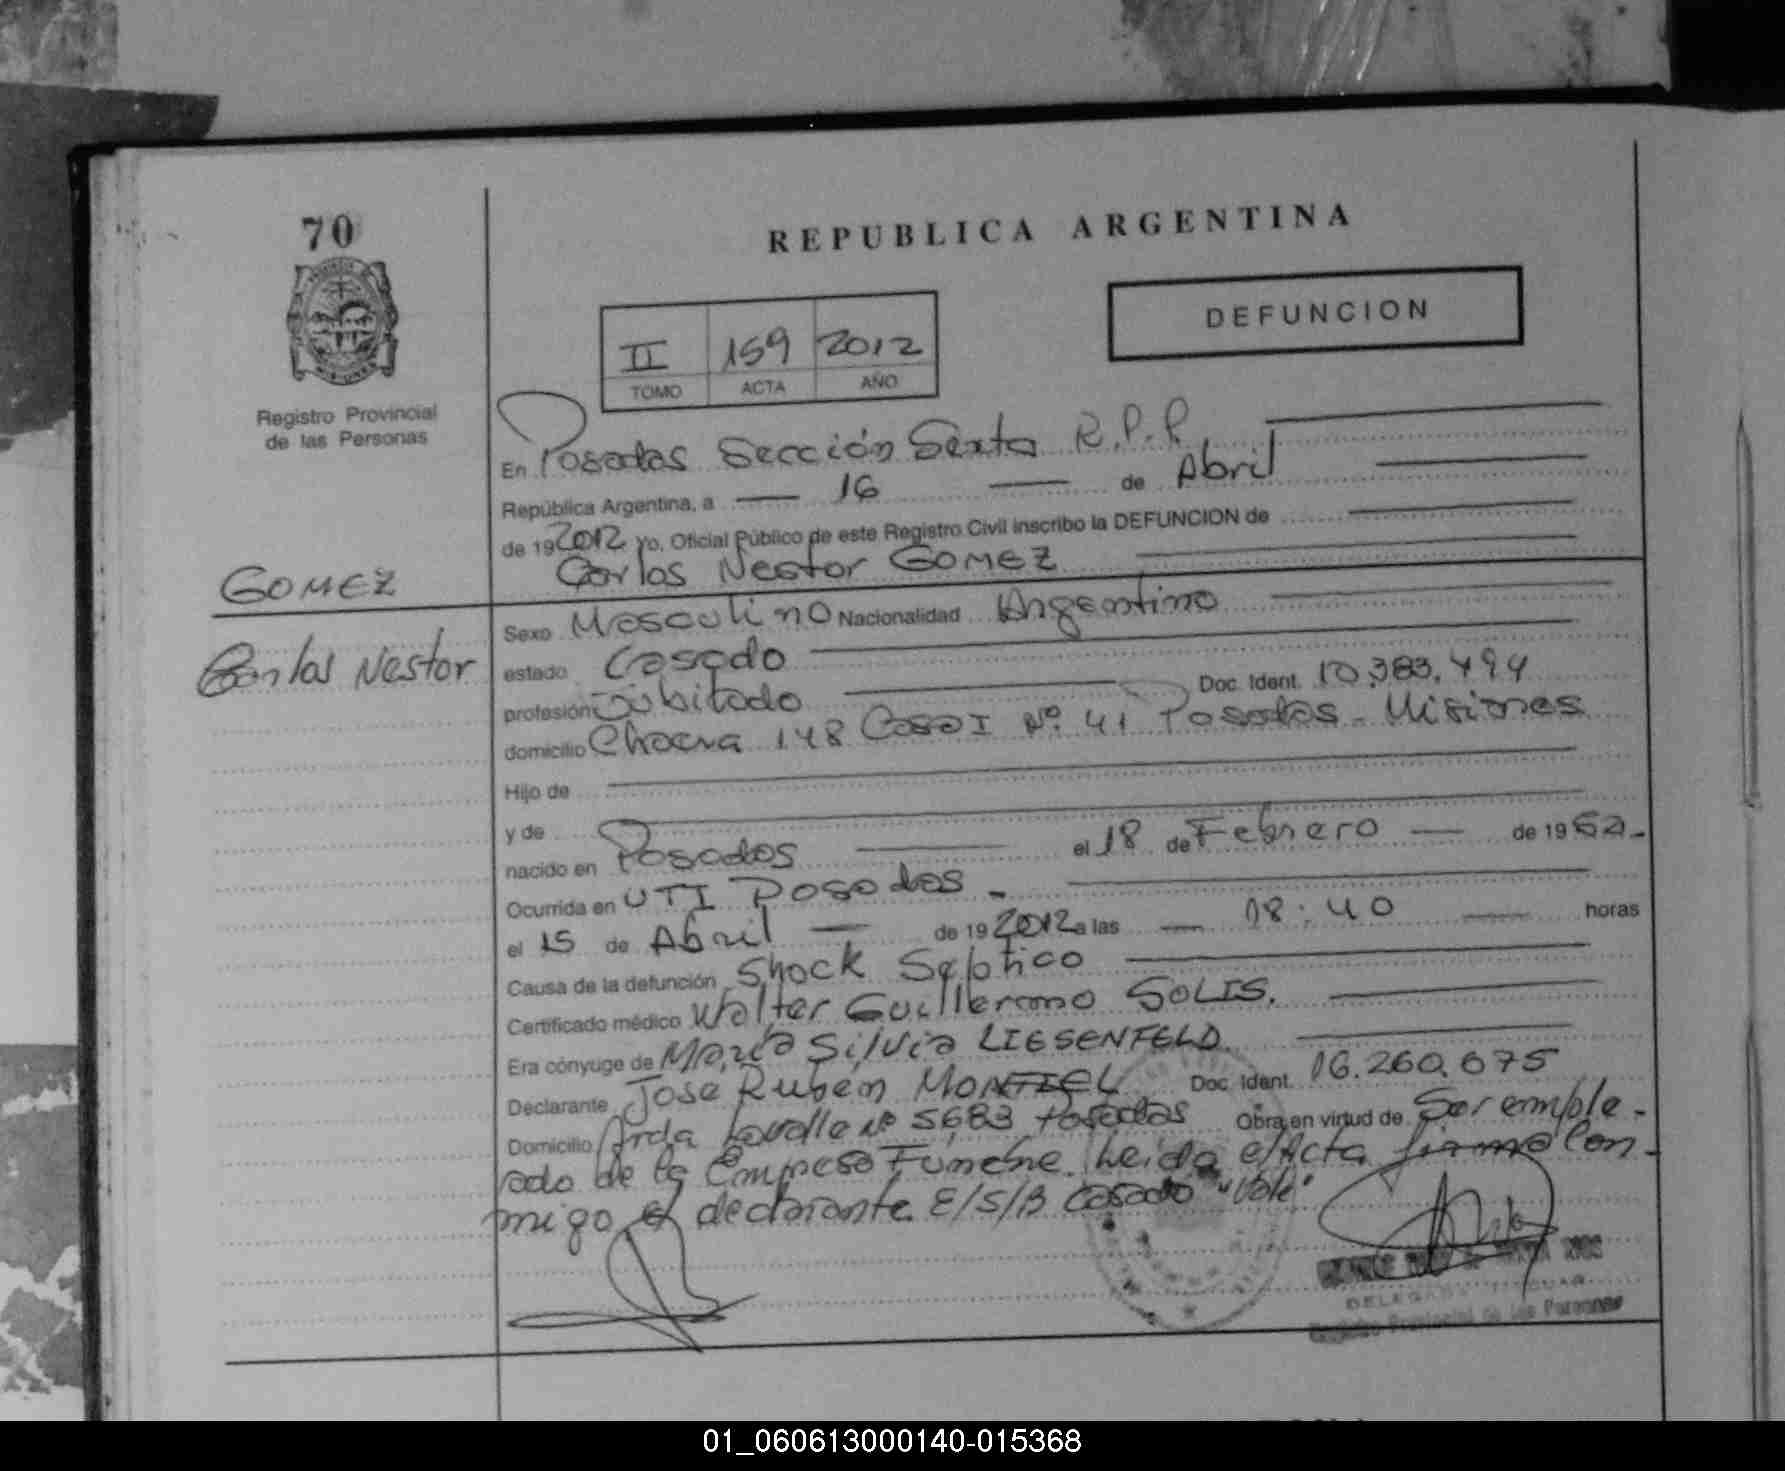 70
REPUBLICA ARGENTINA
DEFUNCION
II 159 2012
TOMO ACTA AÑO
Registro Provincial
de las Personas
En Posadas Sección Sexta R.P.P.
República Argentina, a 16 de Abril
de 19 2012 yo, Oficial Público de este Registro Civil inscribo la DEFUNCION de
Carlos Nestor GOMEZ
GOMEZ
Carlos Nestor
Sexo Masculino Nacionalidad Argentino
estado Casado
profesión Jubilado Doc. Ident. 10.383.494
domicilio Chacra 148 Casa I Nº 41 Posadas - Misiones
Hijo de
y de
nacido en Posadas el 18 de Febrero de 1952.
Ocurrida en UTI Posadas -
el 15 de Abril de 19 2012 a las 18:40 horas
Causa de la defunción Shock Septico
Certificado médico Walter Guillermo SOLIS.
Era cónyuge de María Silvia LIESENFELD
Declarante Jose Ruben MONTIEL Doc. Ident. 16.260.675
Domicilio Avda Lavalle Nº 5683 Posadas Obra en virtud de Ser emple-
ado de la Empresa Funebre. Leida el Acta firma Con-
migo el declarante. E/S/B Casado "Vale"
DELEGADA TITULAR
Registro Provincial de las Personas
01_060613000140-015368